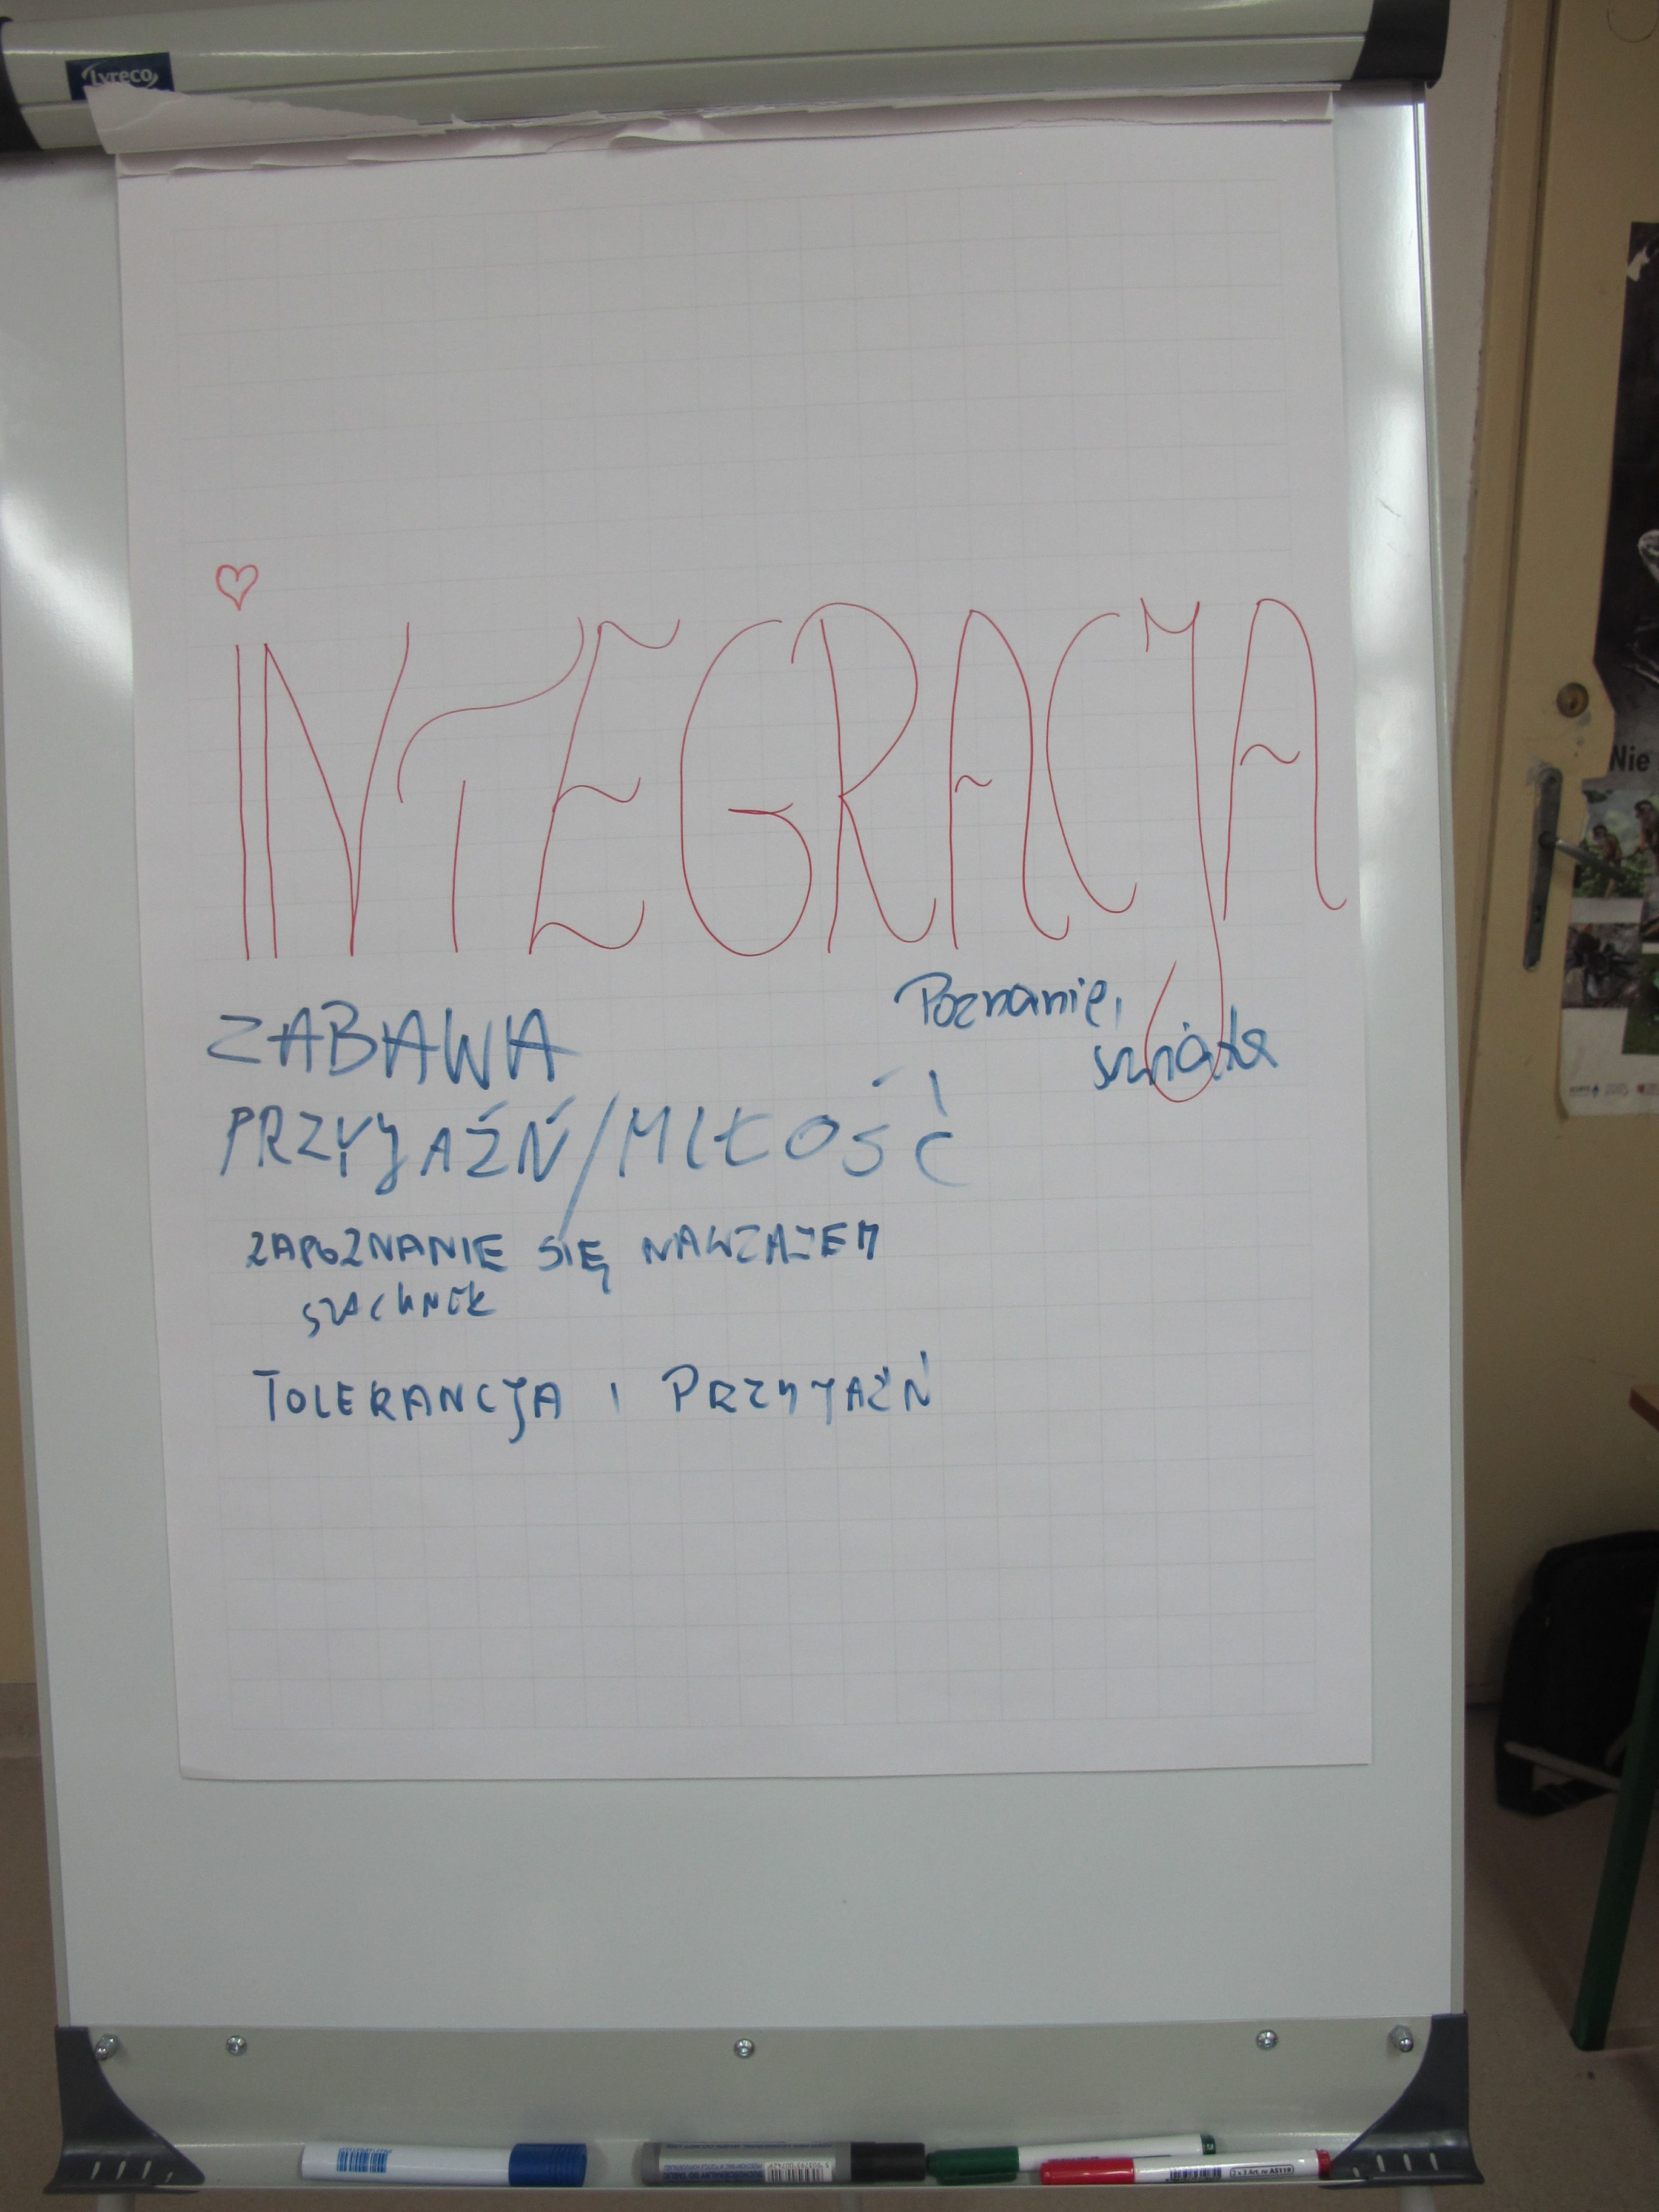 lyreco
INTEGRACJA
Poznanie,
świata
ZABAWA
PRZYJAŹŃ/MIŁOŚĆ
ZAPOZNANIE SIĘ NAWZAJEM
TOLERANCJA I PRZYJAŹŃ
Nie